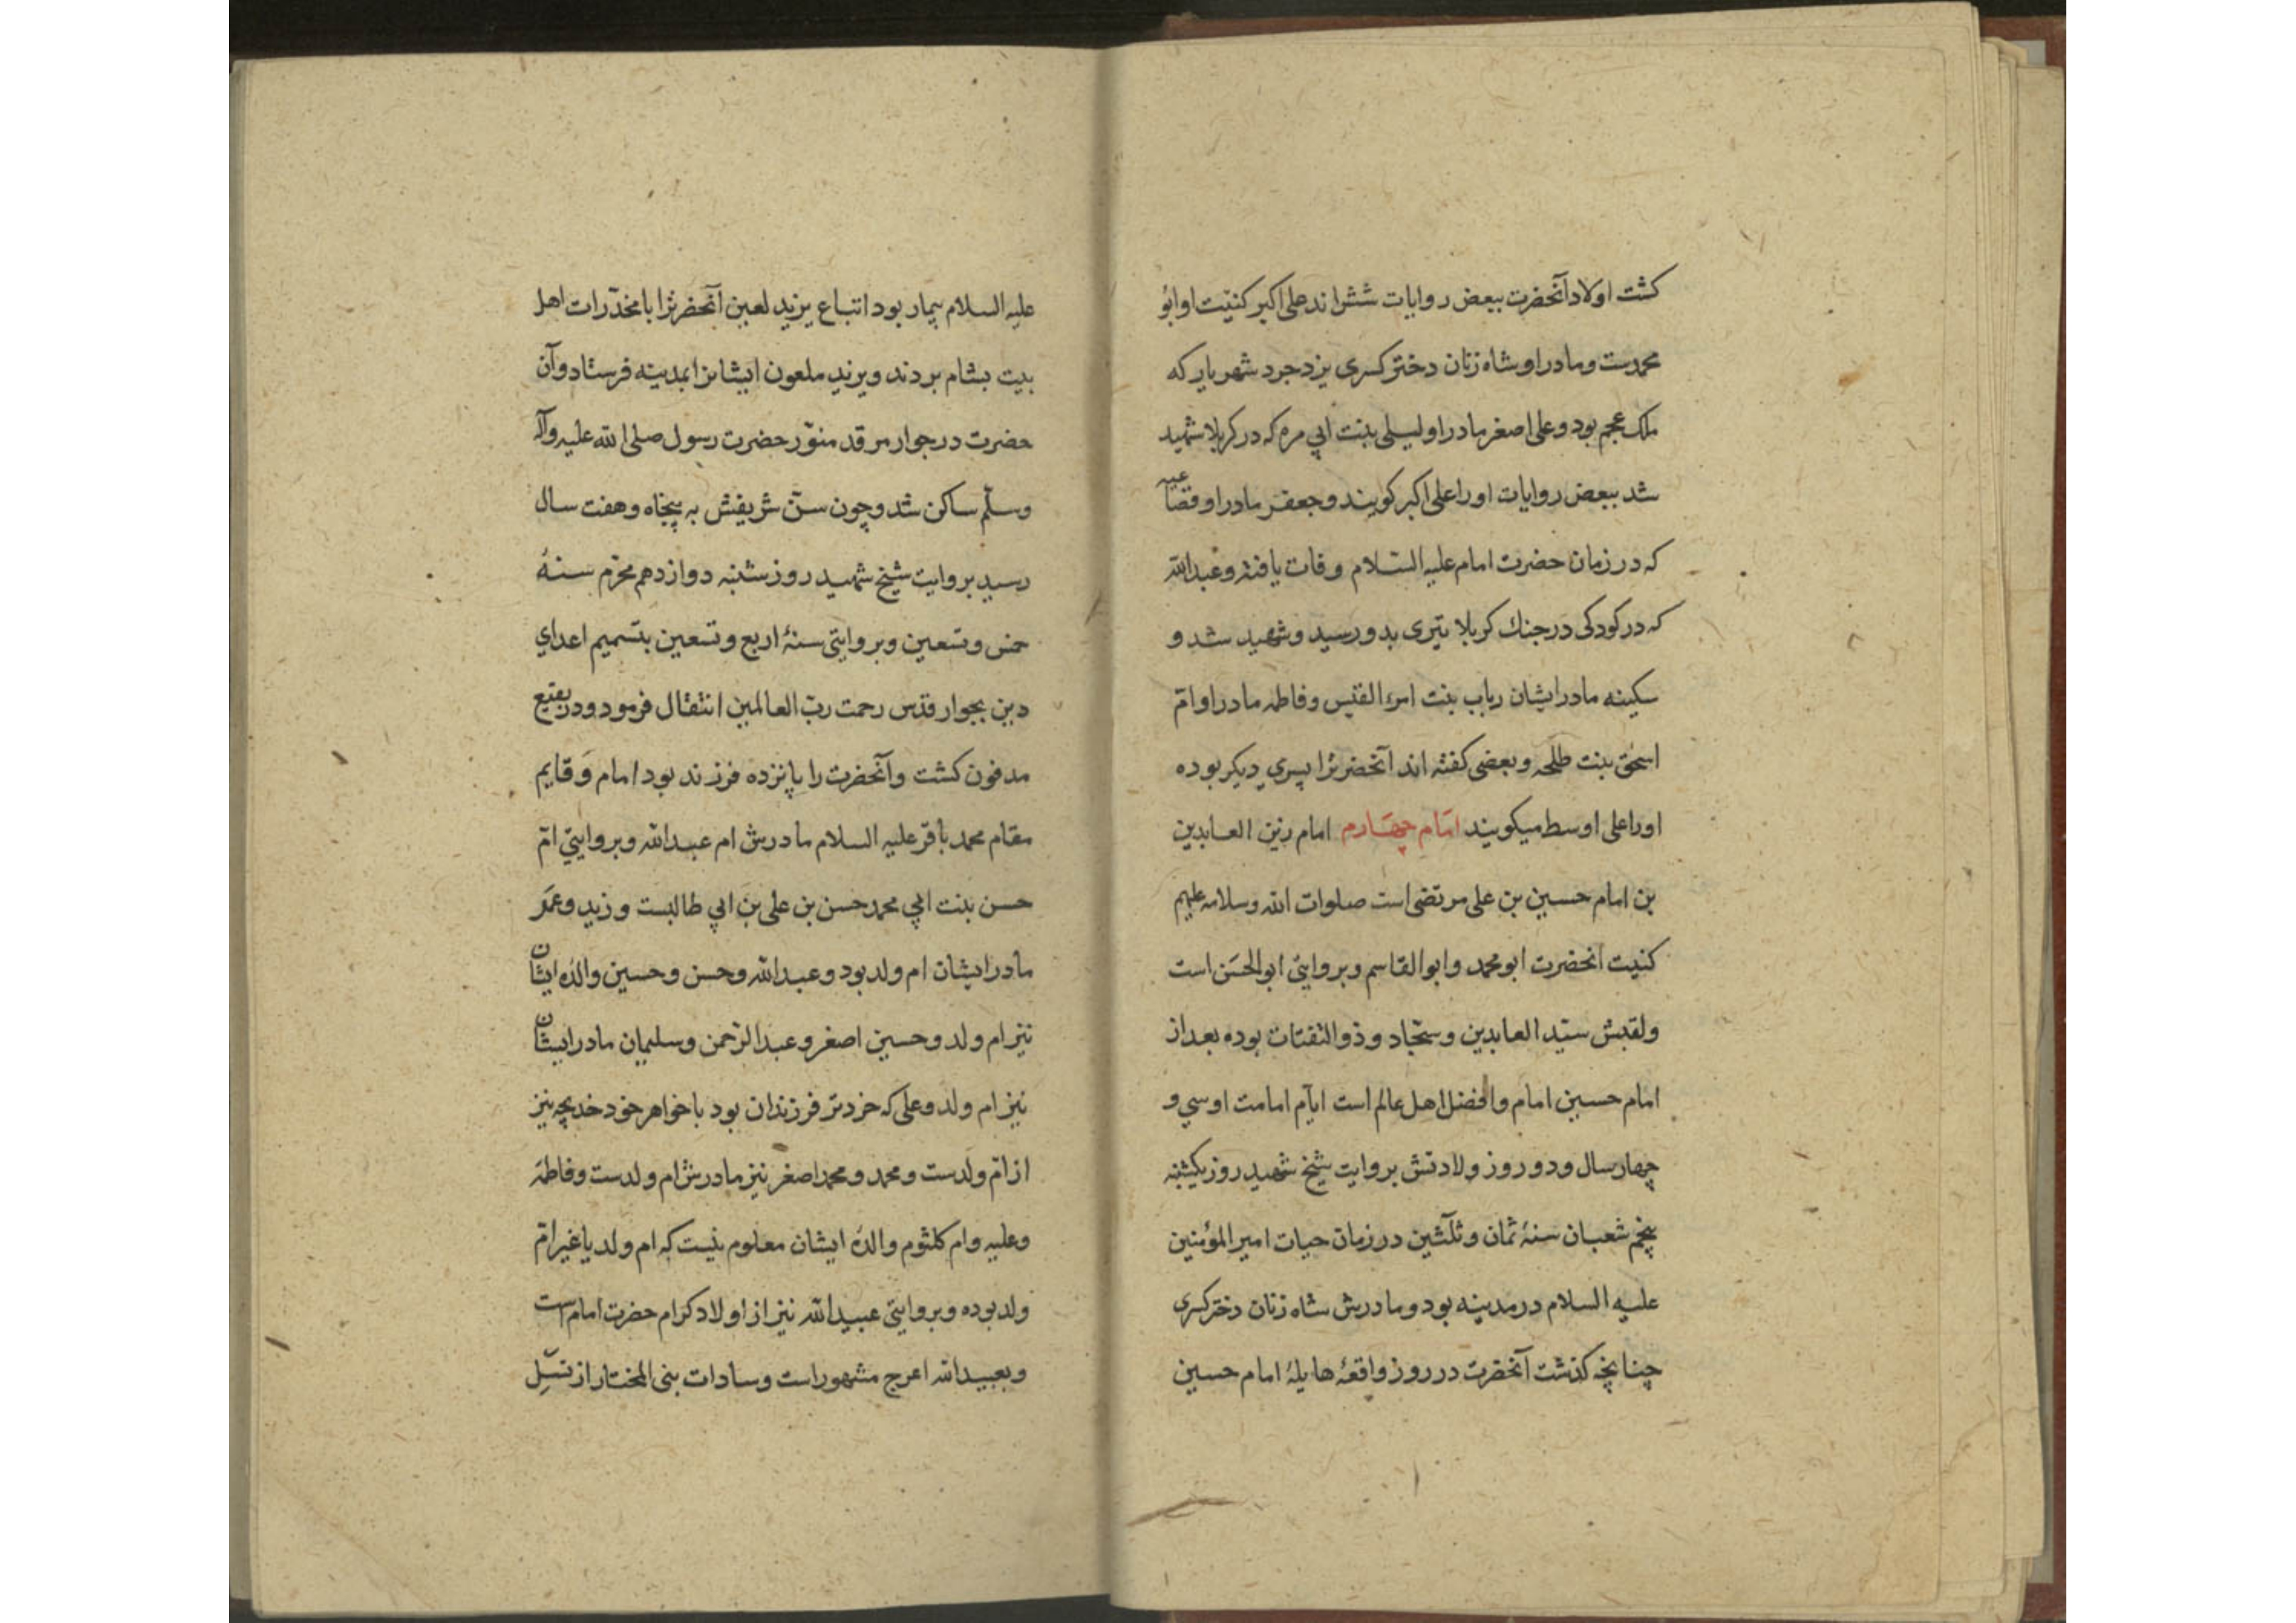 کشت اولاد آنحضرت ببعض روایات شش‌اند علی اکبر کنیت او ابو
محمدست و مادر او شاه زنان دختر کسری یزدجرد شهریار که
ملک عجم بود و علی اصغر مادر او لیلی بنت ابی مره که در کربلا شهید
شد ببعض روایات او را علی اکبر کویند و جعفر مادر او قضاعیه
که در زمان حضرت امام علیه السّلام وفات یافته و عبدالله
که در کودکی در جنک کربلا تیری بدو رسید و شهید شد و
سکینه مادر ایشان رباب بنت امرء القیس و فاطمه مادر او امّ
اسحق بنت طلحه و بعضی کفته اند آنحضرترا پسری دیکر بوده
او را علی اوسط میکویند امام چهارم امام زین العابدین
بن امام حسین بن علی مرتضی است صلوات الله وسلامه علیهم
کنیت انحضرت ابو محمد و ابوالقاسم و بروایتی ابوالحسن است
و لقبش سیّد العابدین و سجّاد و ذو الثفنات بوده بعد از
امام حسین امام و افضل اهل عالم است ایّام امامت او سی و
چهار سال و دو روز ولادتش بروایت شیخ شهید روز یکشنبه
پنجم شعبان سنهٔ ثمان و ثلثین در زمان حیات امیر المؤمنین
علیه السلام در مدینه بود و مادرش شاه زنان دختر کسری
چنانچه کذشت آنحضرت در روز واقعهٔ هایلهٔ امام حسین
علیه السلام بیمار بود اتباع یزید لعین آنحضرترا با مخدّرات اهل
بیت بشام بردند و یزید ملعون ایشانرا بمدینه فرستاد و آن
حضرت در جوار مرقد منوّر حضرت رسول صلی الله علیه وآله
وسلّم ساکن شد و چون سنّ شریفش به پنجاه و هفت سال
رسید بروایت شیخ شهید روز شنبه دوازدهم محرّم سنهٔ
خمس و تسعین و بروایتی سنهٔ اربع و تسعین بتسمیم اعدای
دین بجوار قدس رحمت ربّ العالمین انتقال فرمود و در بقیع
مدفون کشت و آنحضرت را پانزده فرزند بود امام و قایم
مقام محمد باقر علیه السلام مادرش ام عبدالله و بروایتی امّ
حسن بنت ابی محمد حسن بن علی بن ابی طالبست و زید و عمر
مادر ایشان ام ولد بود و عبدالله و حسن و حسین والدهٔ ایشان
نیز ام ولد و حسین اصغر و عبدالرّحمن و سلیمان مادر ایشان
نیز ام ولد و علی که خردتر فرزندان بود با خواهر خود خدیجه نیز
از امّ ولدست و محمد و محمد اصغر نیز مادرش ام ولدست و فاطمه
و علیه و ام کلثوم والدهٔ ایشان معلوم نیست که ام ولد یا غیر امّ
ولد بوده و بروایتی عبیدالله نیز از اولاد کرام حضرت امام است
و بعبیدالله اعرج مشهور است و سادات بنی المختار از نسل